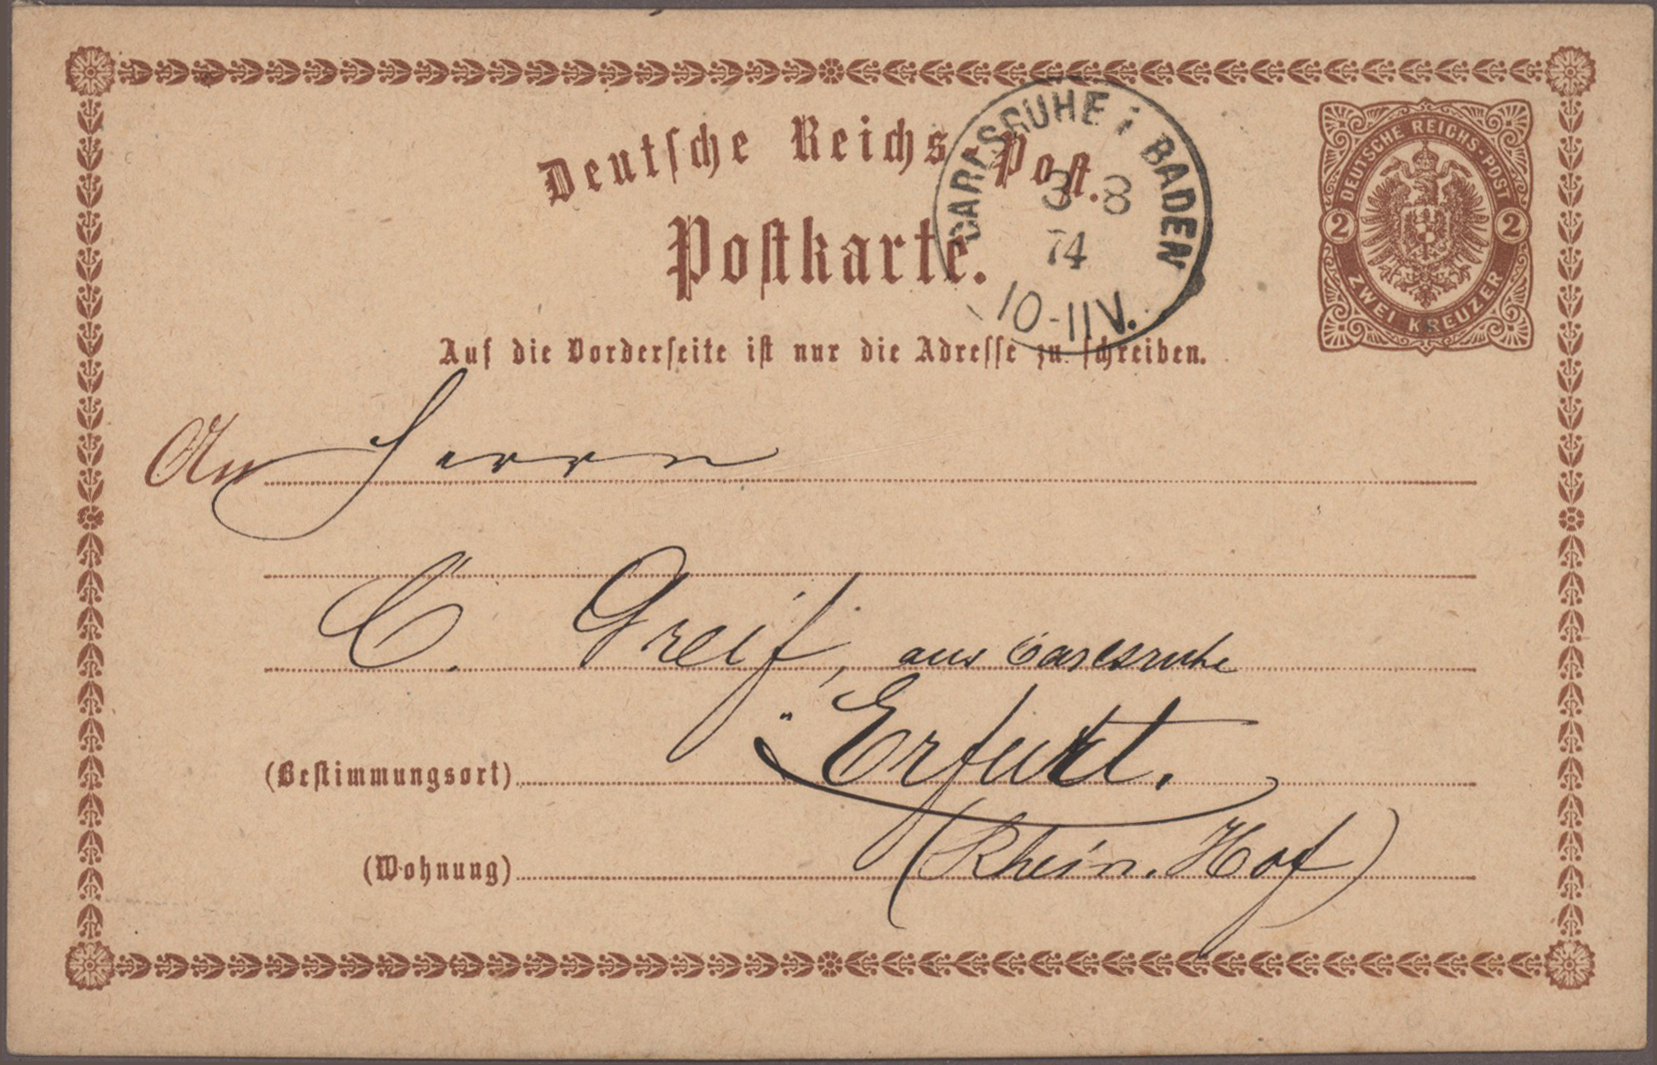 Deutsche Reichs-Post.
Postkarte.
Auf die Vorderseite ist nur die Adresse zu schreiben.
CARLSRUHE i BADEN
3 8
74
10-11V.
DEUTSCHE REICHS-POST
2 2
ZWEI KREUZER
An Herrn
C. Greif, aus Carlsruhe
(Bestimmungsort) Erfurt.
(Wohnung) (Rhein. Hof)